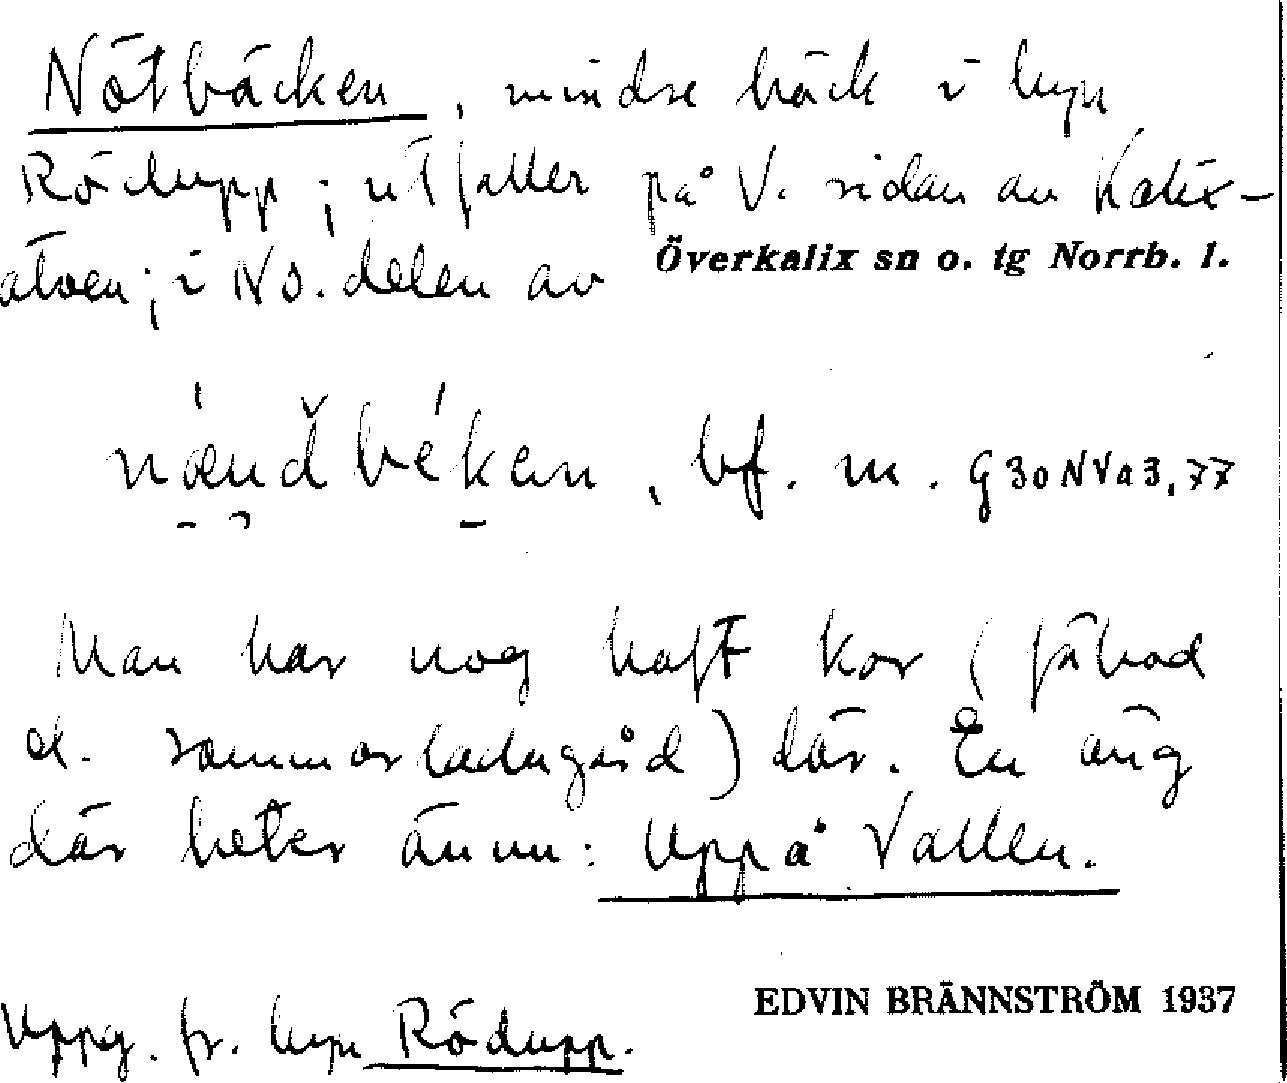 Nötbäcken, mindre bäck i byn
Rödupp; utfaller på V. sidan av Kalix-
älven; i NO. delen av
Överkalix sn o. tg Norrb. l.
bf. m. G30NVa3,77
Man har nog haft kor (fäbod
el. sommarladugård) där. En äng
där heter ännu: Uppå Vallen.
EDVIN BRÄNNSTRÖM 1937
Uppg. fr. byn Rödupp.